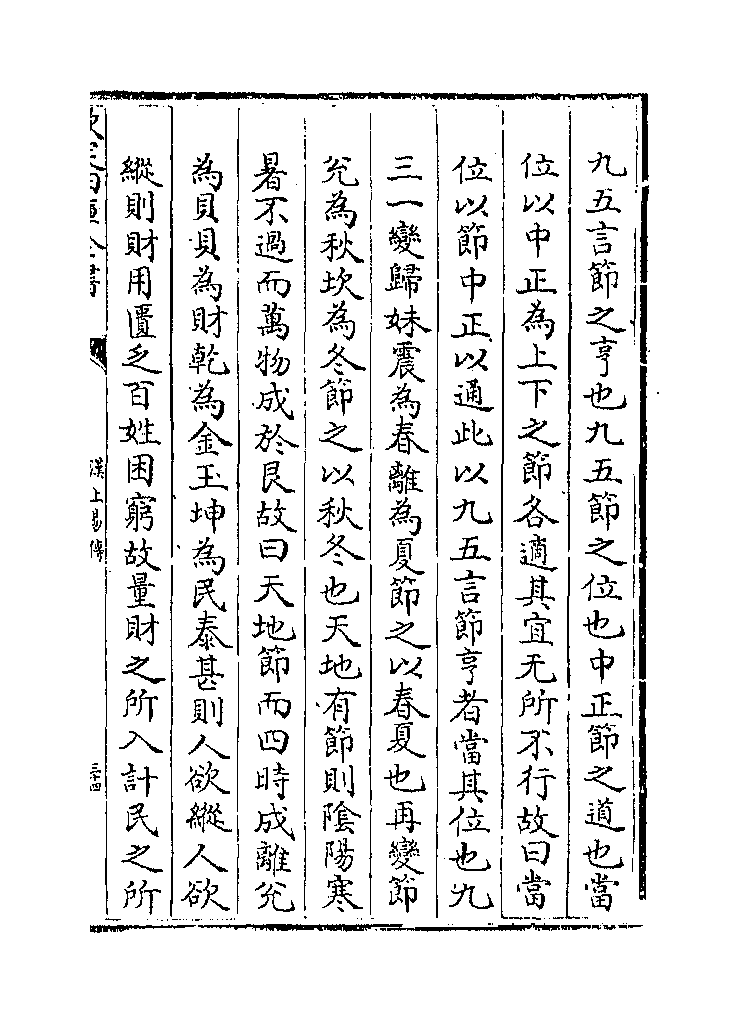 九五言節之亨也九五節之位也中正節之道也當
位以中正為上下之節各適其宜无所不行故曰當
位以節中正以通此以九五言節亨者當其位也九
三一變歸妹震為春離為夏節之以春夏也再變節
兊為秋坎為冬節之以秋冬也天地有節則陰陽寒
暑不過而萬物成於艮故曰天地節而四時成離兊
為貝貝為財乾為金玉坤為民泰甚則人欲縱人欲
縱則財用匱乏百姓困窮故量財之所入計民之所
欽定四庫全書
漢上易傳
三四